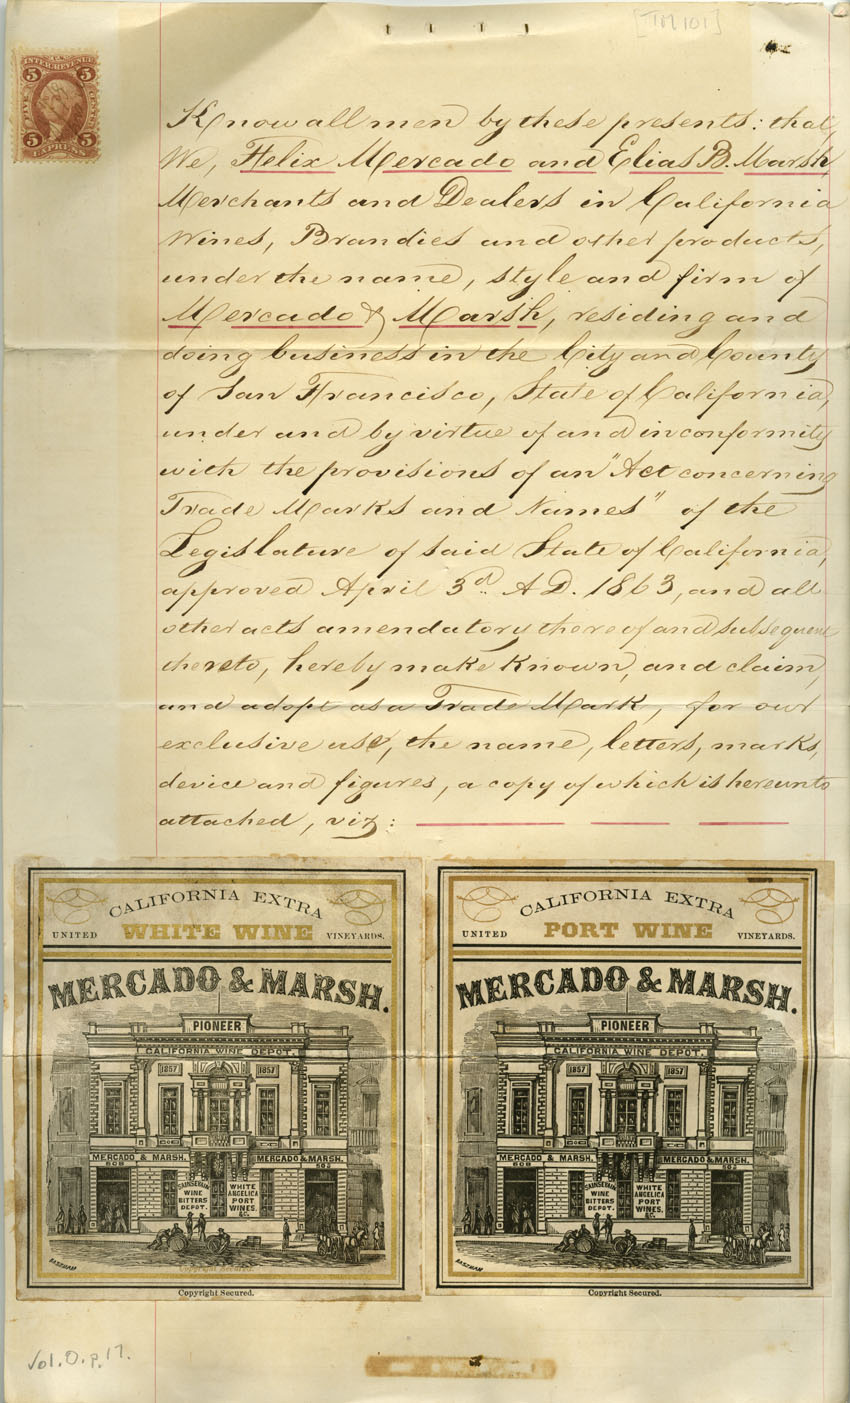 [TM 101]
U.S.
INTER. REVENUE
5 5
FIVE CENTS
5 5
EXPRESS
Know all men by these presents: that
We, Felix Mercado and Elias B. Marsh,
Merchants and Dealers in California
Wines, Brandies and other products,
under the name, style and firm of
Mercado & Marsh, residing and
doing business in the City and County
of San Francisco, State of California,
under and by virtue of and in conformity
with the provisions of an "Act concerning
Trade Marks and Names" of the
Legislature of said State of California,
approved April 3d. A D. 1863, and all
other acts amendatory thereof and subsequent
thereto, hereby make known, and claim,
and adopt as a Trade Mark, for our
exclusive use, the name, letters, marks,
device and figures, a copy of which is hereunto
attached, viz:
CALIFORNIA EXTRA
UNITED WHITE WINE VINEYARDS.
MERCADO & MARSH.
PIONEER
CALIFORNIA WINE DEPOT.
1857 1857
MERCADO & MARSH. MERCADO & MARSH.
608
SAINSEVAIN
WINE
BITTERS
DEPOT.
WHITE
ANGELICA
PORT
WINES.
&c.
Copyright Secured.
Copyright Secured.
CALIFORNIA EXTRA
UNITED PORT WINE VINEYARDS.
MERCADO & MARSH.
PIONEER
CALIFORNIA WINE DEPOT.
1857 1857
MERCADO & MARSH. MERCADO & MARSH.
608
SAINSEVAIN
WINE
BITTERS
DEPOT.
WHITE
ANGELICA
PORT
WINES.
&c.
Copyright Secured.
Vol. O. p. 17.